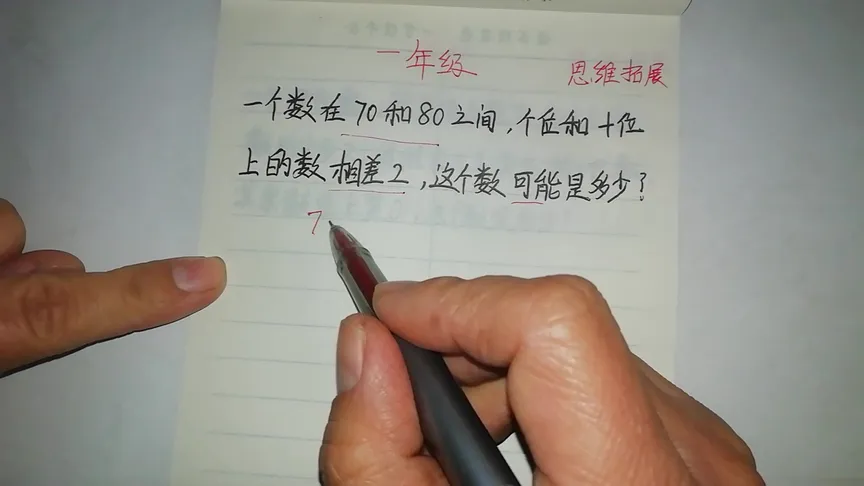 一年级
思维拓展
一个数在70和80之间,个位和十位
上的数相差2,这个数可能是多少?
7